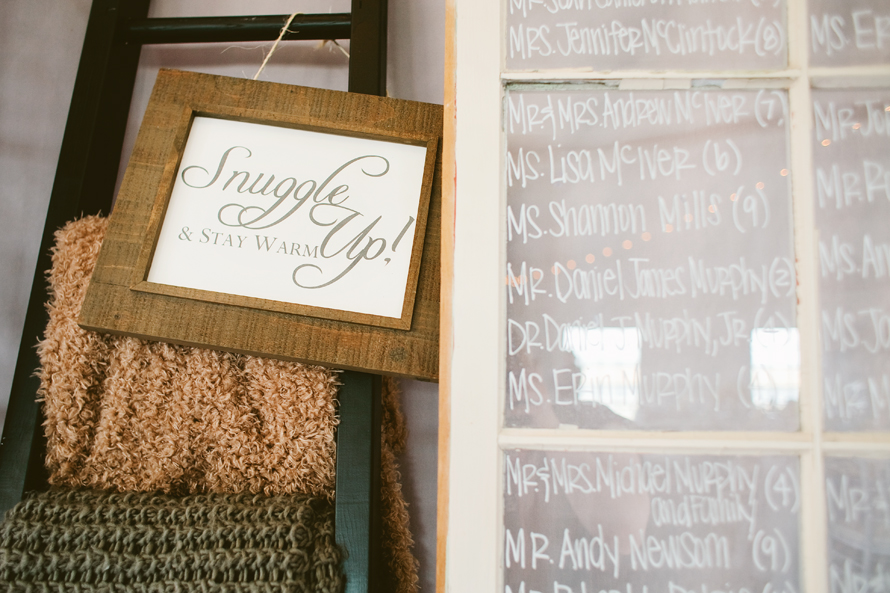 Snuggle
& STAY WARM Up!
MRS. JENNIFER McClintock (8)
MR. & MRS. ANDREW McIVER (7)
MS. LISA McIVER (6)
MS. Shannon Mills (9)
MR. Daniel James Murphy (2)
DR. Daniel J. Murphy, JR. (4)
MS. ERIN MURPHY
MR. & MRS. Michael Murphy (4)
and Family
MR. Andy Newsom (9)
MS. ER
MS. J